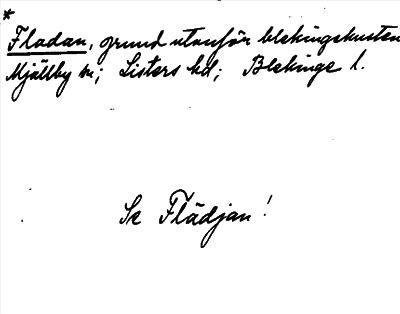 *
Fladan, grund utanför blekingskusten
Mjällby sn; Listers hd; Blekinge l.
Se Flädjan!